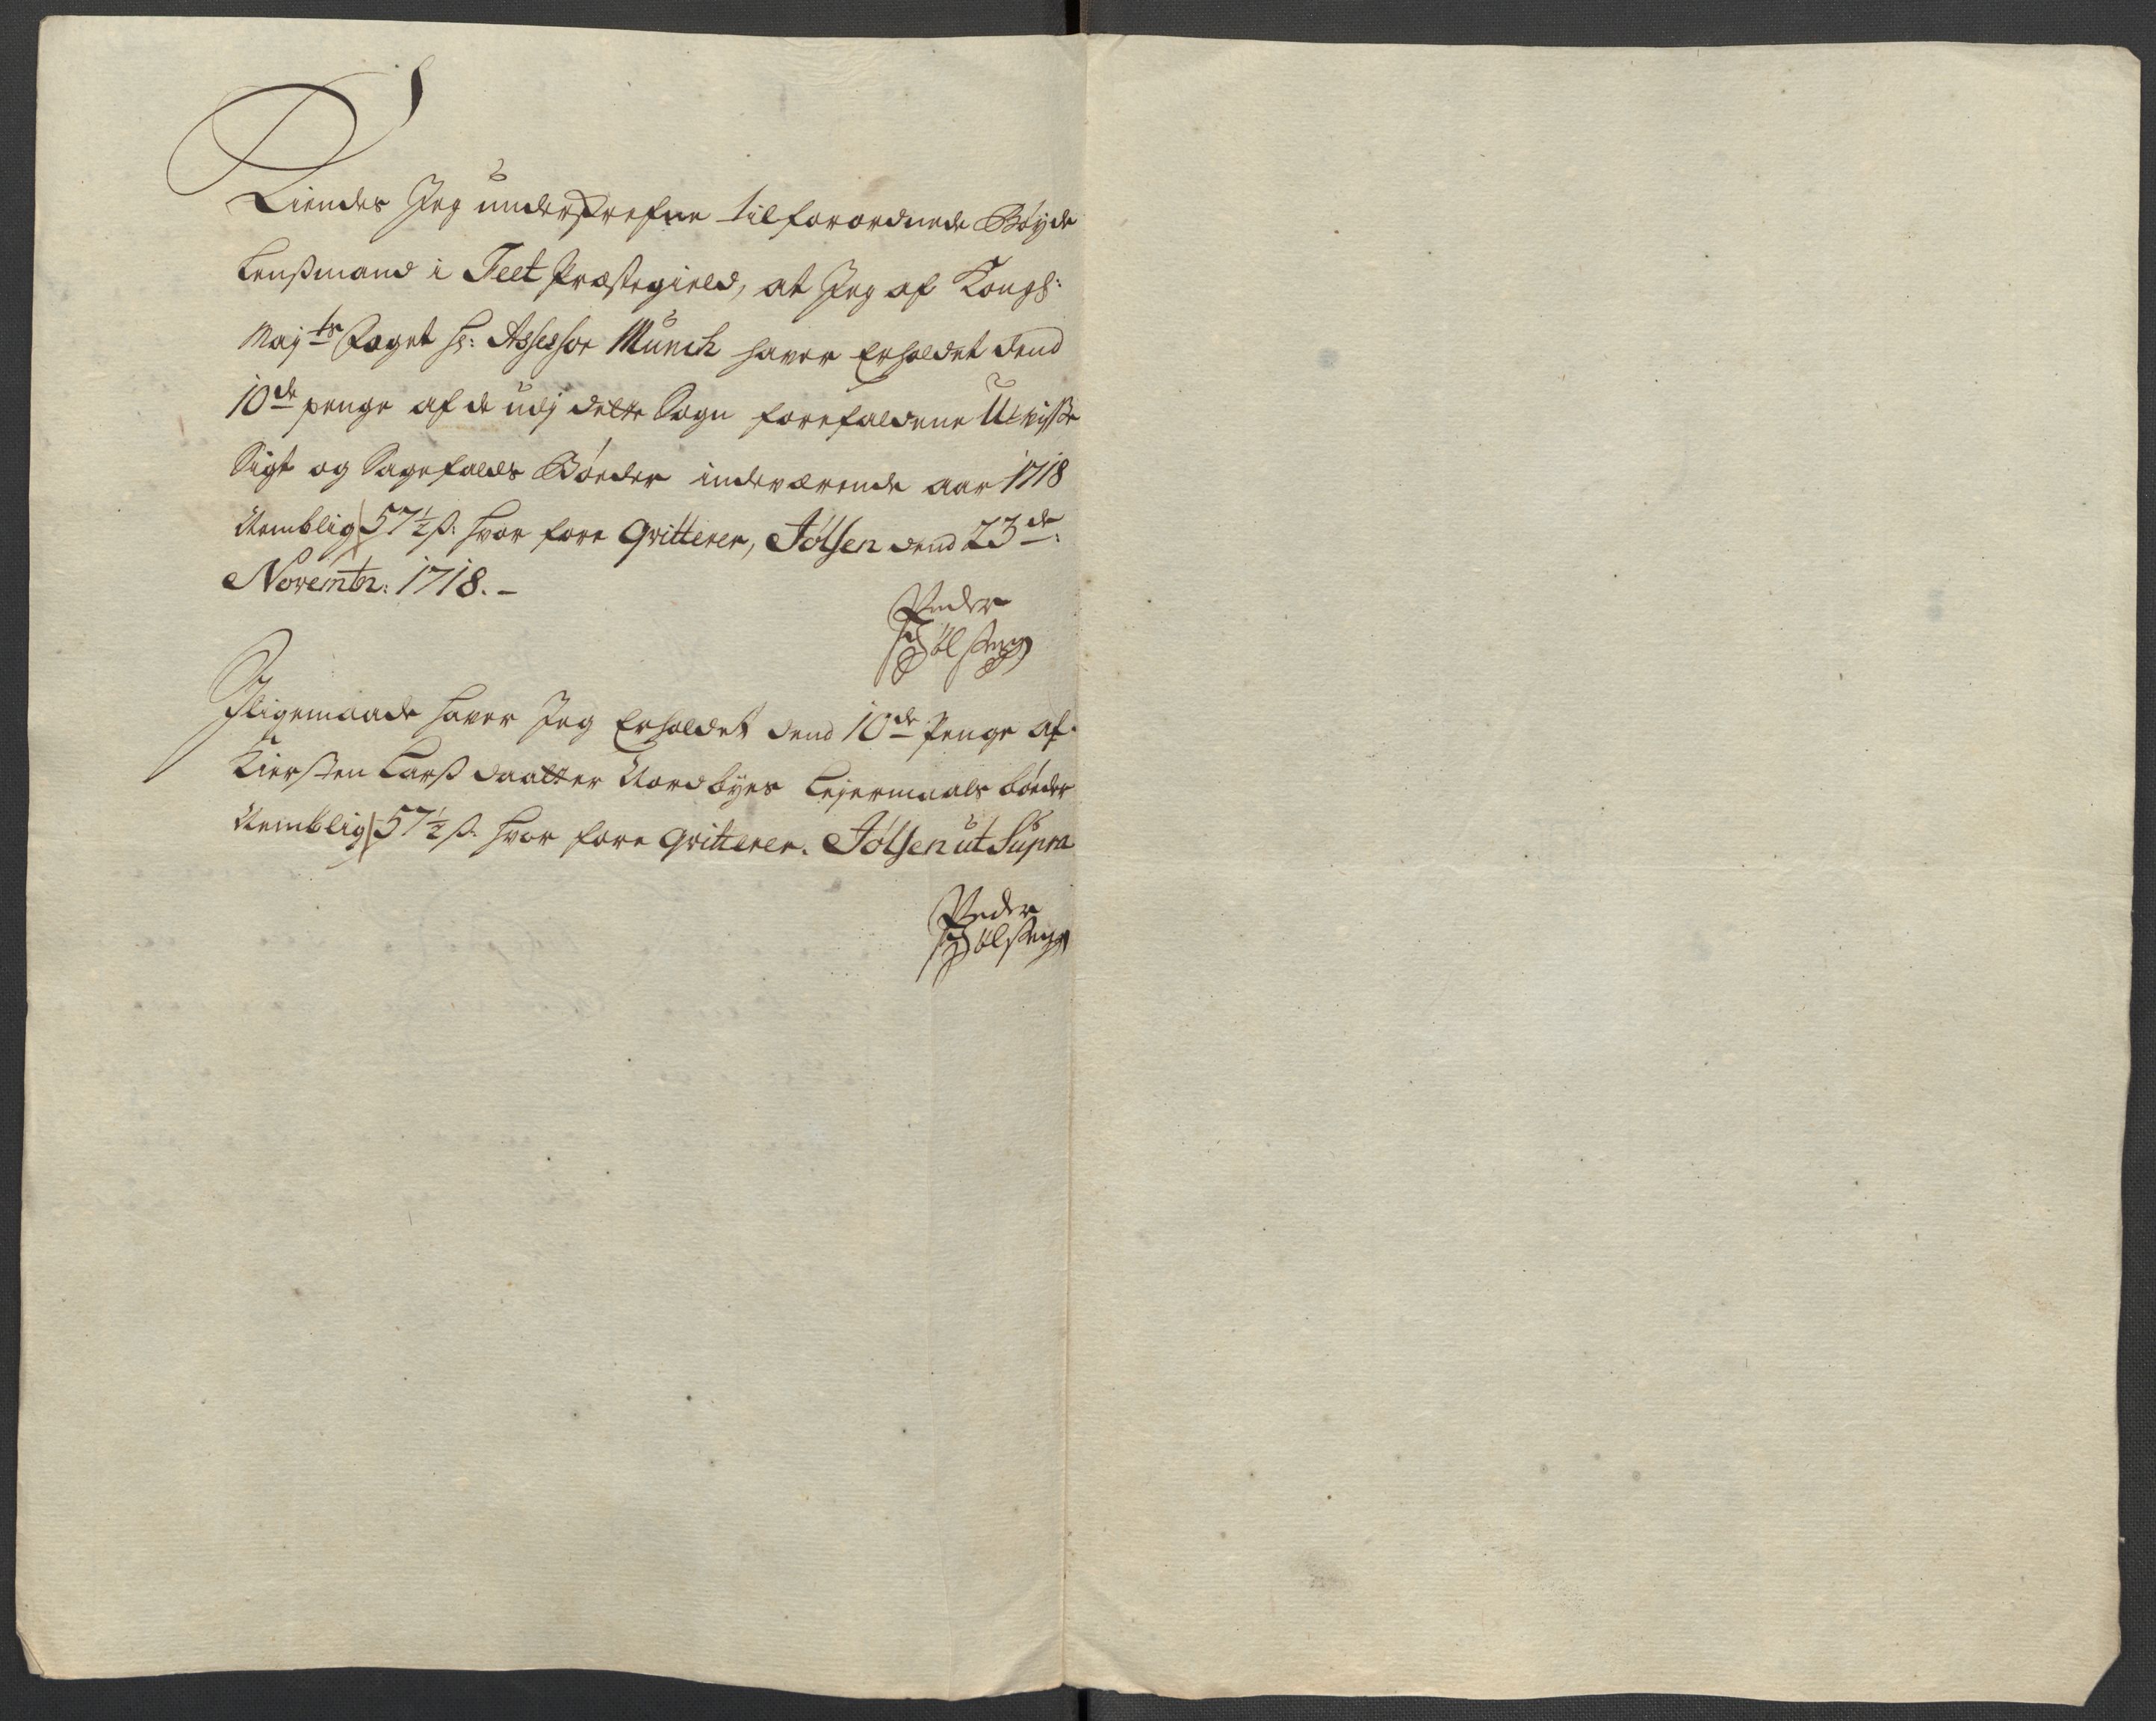 Kiendes Jeg underskrefne tilforordnede Bøyde
Lensmand i Feet Præstegield, at Jeg af Kongl:
May:ts Foget Hr: Assessor Munch haver Erholdet dend
10de penge af de udj dette Sogn forefaldene Uvisse
Sigt og Sagefalds Bøeder indeværende aar 1718
Nemblig 57½ ß: hvor fore qvitterer, Jølsen dend 23de:
Novembr: 1718. –
Peder
Jøelsen
Iligemaade haver Jeg Erholdet dend 10de Penge af
Kiersten Larsdaatter Nordbyes Lejermaals bøeder
Nemblig 57½ ß. hvor fore qvitterer. Jølsen ut Supra
Peder
Jøelsen